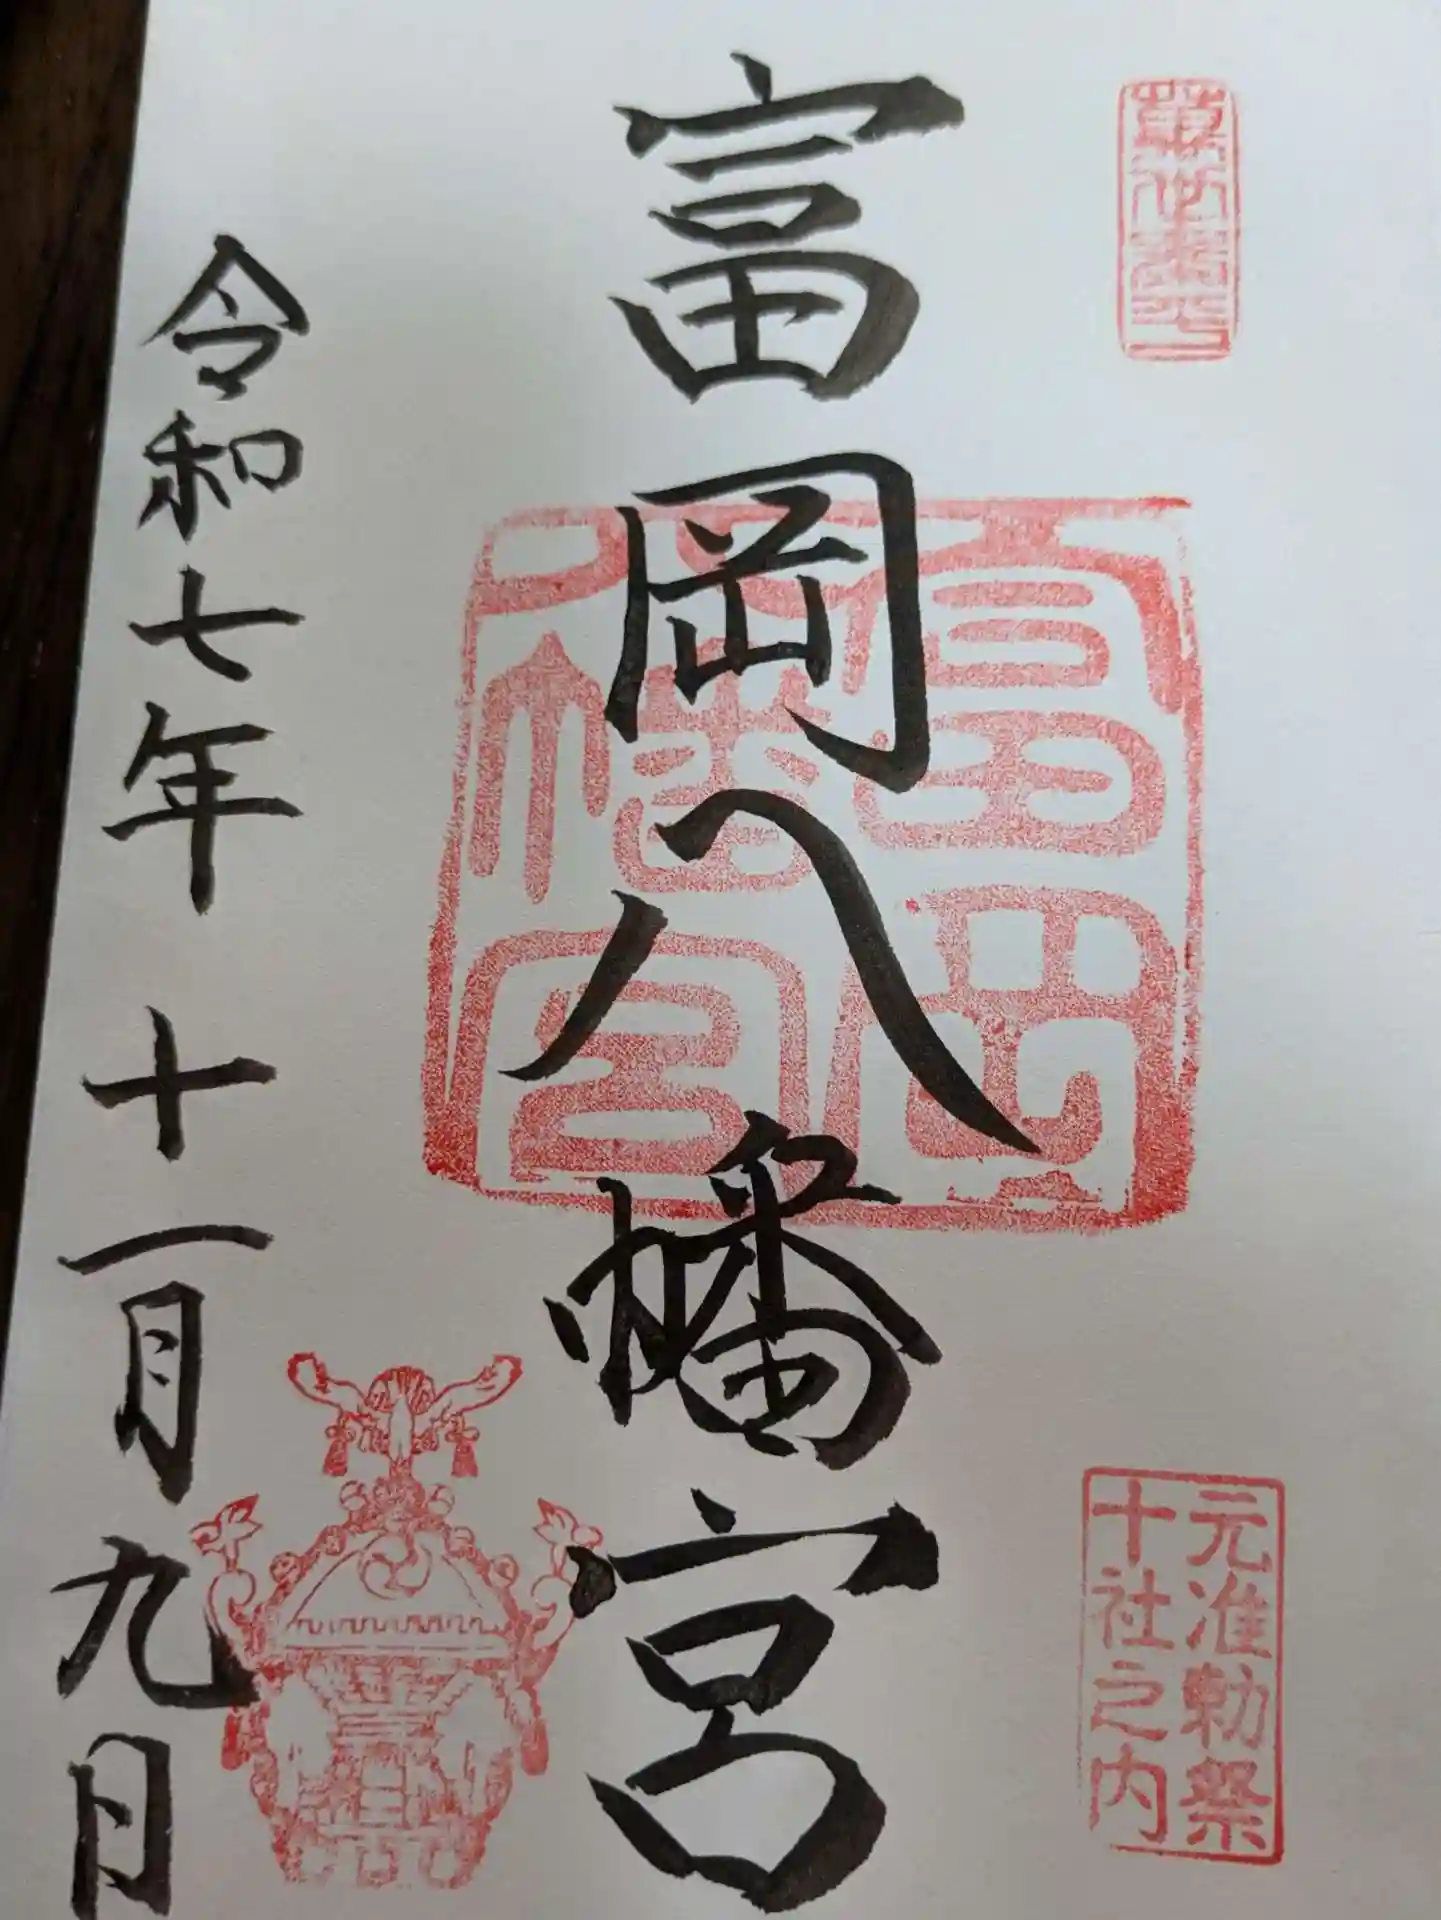 富岡八幡宮
富岡
八幡宮
元准勅祭
十社之内
令和七年 十一月九日